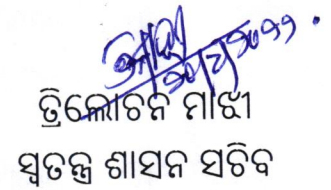 ତ୍ରିଲୋଚନ ମାଝୀ
ସ୍ୱତନ୍ତ୍ର ଶାସନ ସଚିବ